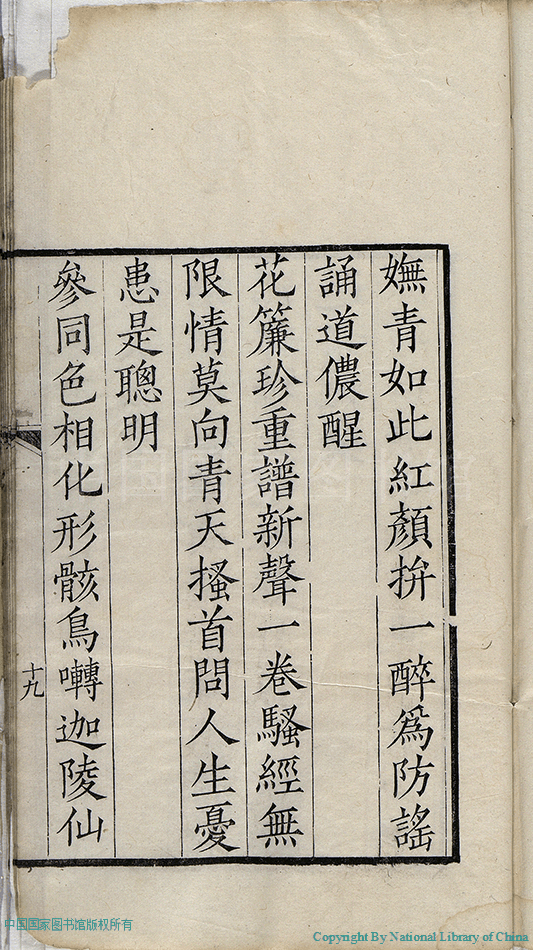 嫵青如此紅顏拚一醉爲防謠
誦道儂醒
花簾珍重譜新聲一卷騷經無
限情莫向青天搔首問人生憂
患是聰明
參同色相化形骸鳥囀迦陵仙
十九
中国国家图书馆版权所有
Copyright By National Library of China